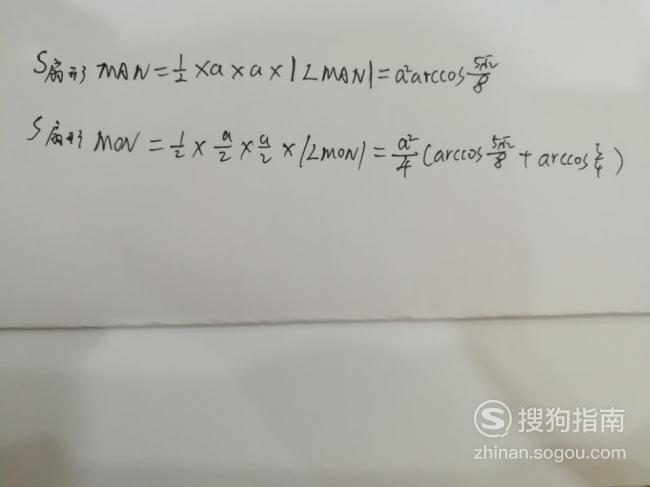 S扇形MAN=½×a×a×|∠MAN|=a²arccos 5√2/8
S扇形MON=½×a/2×a/2×|∠MON|=a²/4(arccos 5√2/8+arccos 3/4)
搜狗指南
zhinan.sogou.com